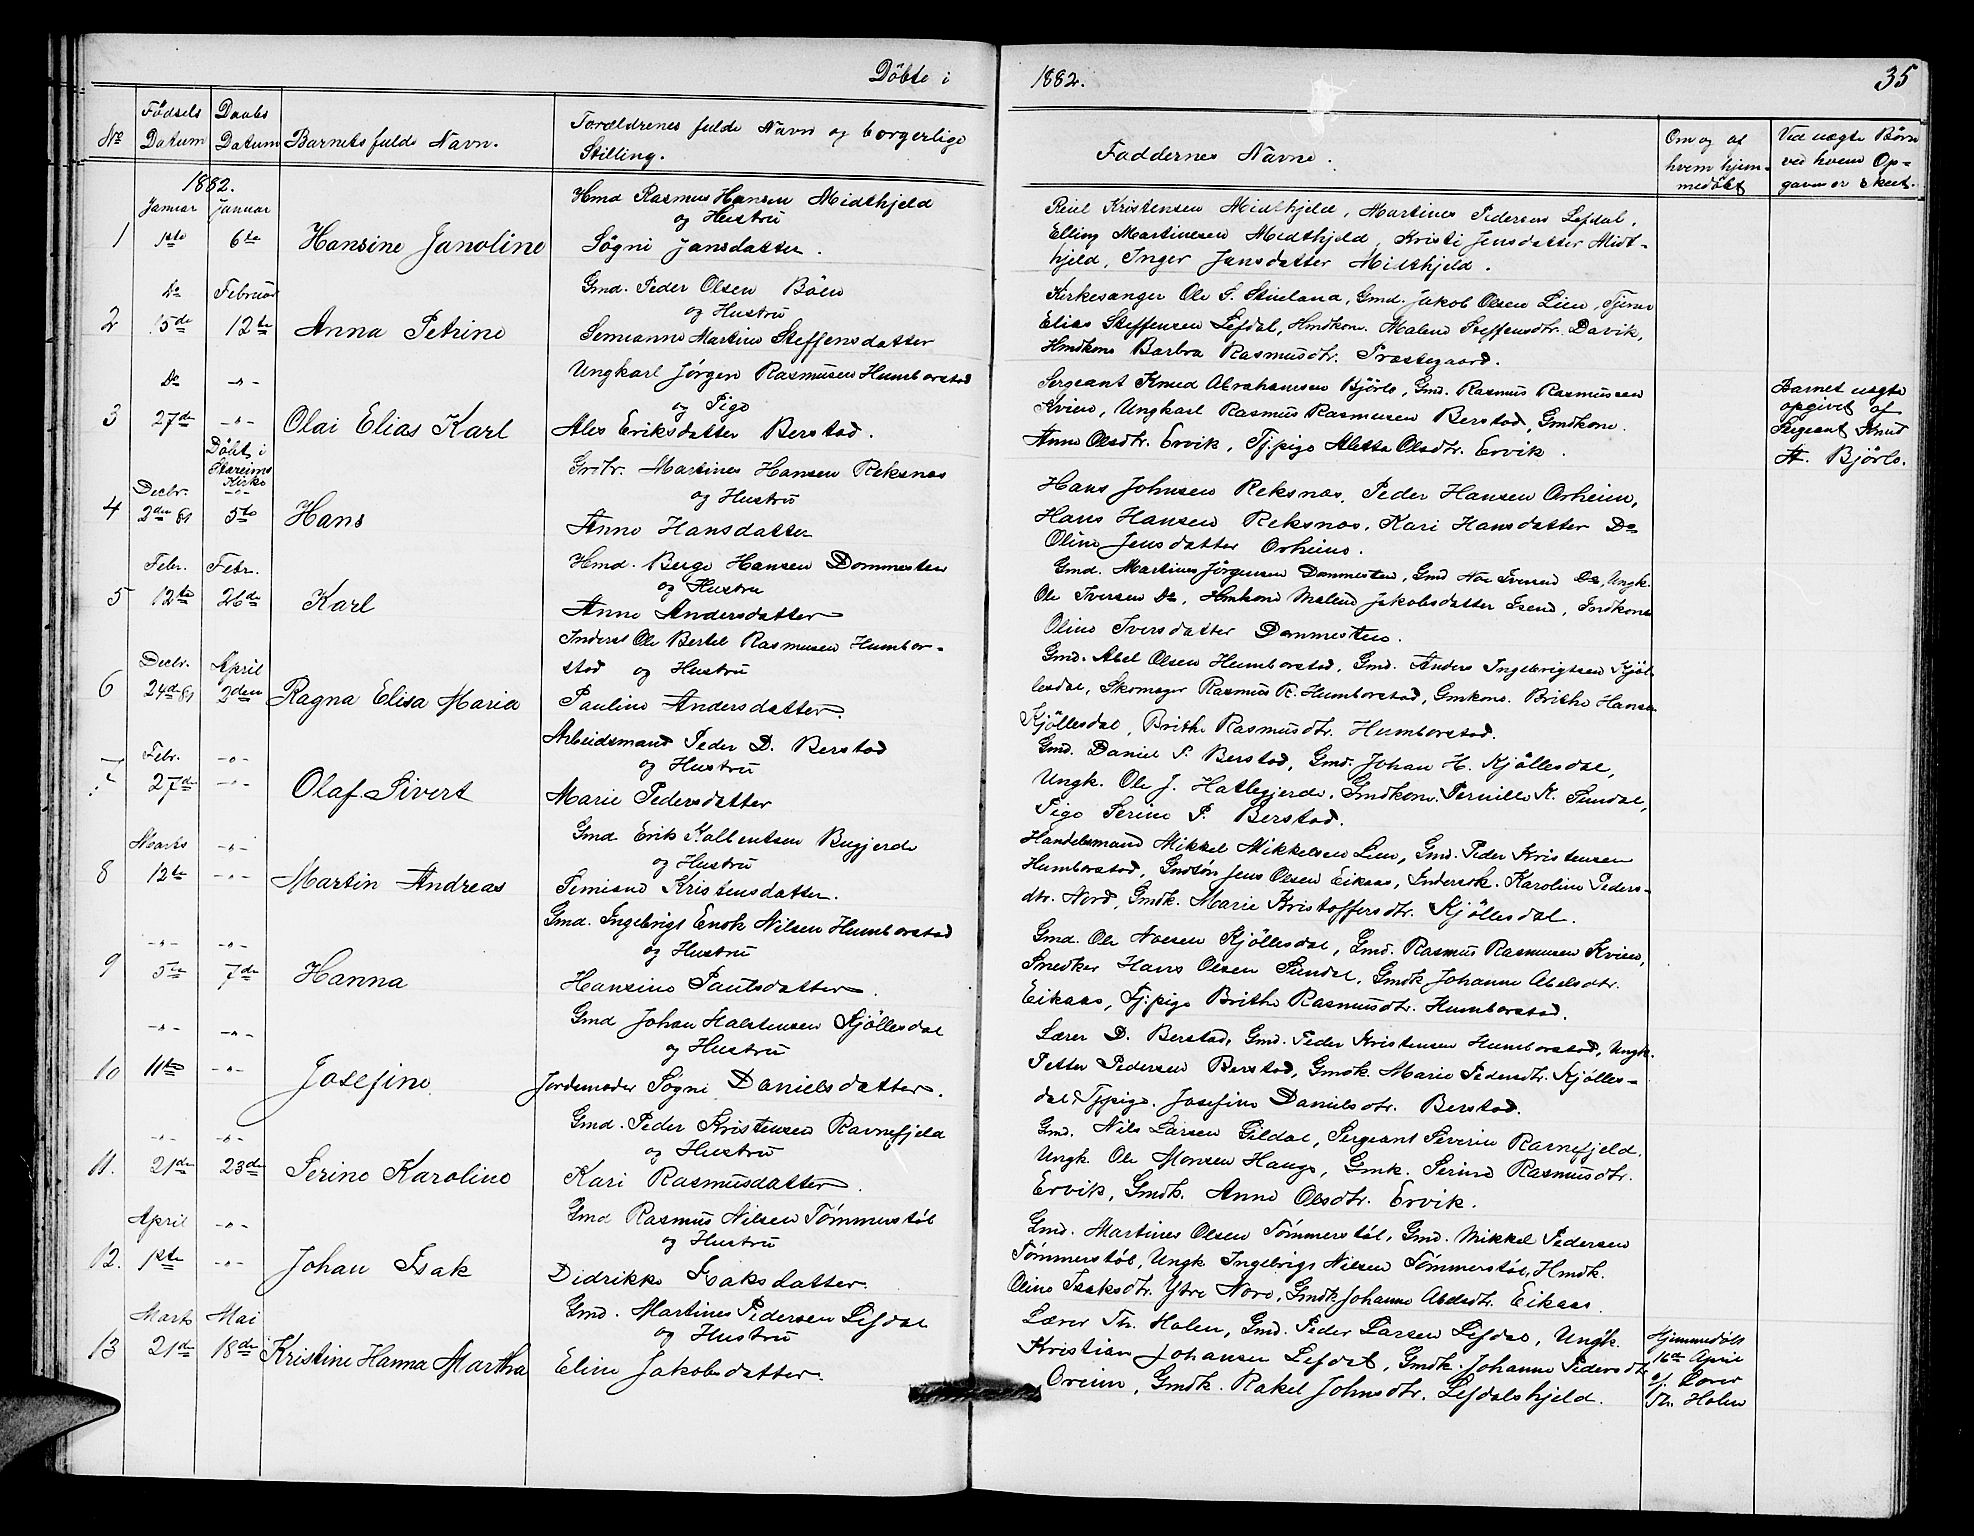 Döbte i
1882.
35
No
Födsels Datum
Daabs Datum
Barnets fulde Navn.
Forældrenes fulde Navn og borgerlige Stilling.
Faddernes Navne.
Om og af hvem hjemmedöbt
Ved uægte Børn ved hvem Opgaven er skeet.
1882.
Januar Januar
1 1ste 6te Hansine Janoline
Hmd Rasmus Hansen Midthjeld
og Hustru
Søgni Jansdatter.
Kristensen Midthjeld, Martines Pedersen Lefdal,
Elling Martinesen Midthjeld, Kristi Jensdatter Midt-
hjeld, Inger Jansdatter Midthjeld.
Do Februar
2 15de 12te Anna Petrine
Gmd. Peder Olsen Böen
og Hustru
Semianne Martine Steffensdatter
Kirkesanger Ole S. Gmd. Jakob Olsen Lien,
Elias Steffensen Lefdal, Hmdkone. Malene Steffensdtr. Davik,
Hmdkone Barbra Rasmusdtr. Præstegaard.
Do -"-
3 27de -"- Olai Elias Karl
Ungkarl Jörgen Rasmusen Humborstad
og Pige
Ales Eriksdatter Berstad.
Sergeant Knud Abrahamsen Bjørlo, Gmd. Rasmus Rasmussen
Kvien, Ungkarl Rasmus Rasmusen Berstad, Gmdkone.
Anne Olsdtr. Ervik, Tj.pige Aletta Olsdtr. Ervik.
Barnet uægte
opgivet af
Sergeant Knud
A. Bjørlo.
Döbt i
Stareims
Kirke
Decbr. -"-
4 2den 81 5te Hans
Grbr. Martines Hansen Reksnæs
og Hustru
Anne Hansdatter
Hans Johnsen Reksnæs, Peder Hansen Orheim,
Hans Hansen Reksnæs, Kari Hansdatter Do
Oline Jensdatter Orheim.
Febr. Febr.
5 12te 26de Karl
Hmd. Berge Hansen Dommesten
og Hustru
Anne Andersdatter
Gmd. Martines Jörgensen Dommesten, Gmd Noe Iversen Do, Ungk.
Ole Iversen Do, Hmkone Malene Jakobsdatter Isene, Indkone
Oline Iversdatter Dommesten.
Decbr. April
6 24de 81 2den Ragna Elisa Maria
Inderst Ole Bertel Rasmusen Humbor-
stad og Hustru
Pauline Andersdatter.
Gmd. Abel Olsen Humborstad, Gmd. Anders Ingebrigtsen Kjöl-
lesdal, Skomager Rasmus R. Humborstad, Gmkone. Brithe Hanse
Kjöllesdal, Brithe Rasmusdtr. Humborstad.
Febr. -"-
27de -"- Olaf Sivert
Arbeidsmand Peder D. Berstad
og Hustru
Marie Pedersdatter
Gmd. Daniel P. Berstad, Gmd. Johan H. Kjöllesdal,
Ungk. Ole J. Hatlegjerde, Gmdkone. Pernille K. Sundal,
Pige Serine P. Berstad.
Marts -"-
8 12te -"- Martin Andreas
Gmd Erik Bugjerde
og Hustru
Semiane Kristensdatter.
Handelsmand Mikkel Mikkelsen Lien, Gmd. Peder Kristensen
Humborstad, Gmdsøn Jens Olsen Eikaas, Inderstk. Karoline Peders-
dtr. Nord, Gmdk. Marie Kristoffersdtr. Kjöllesdal.
-"- -"-
9 5te 7de Hanna
Gmd. Ingebrigt Enok Nilsen Humborstad
og Hustru
Hansine Paulsdatter.
Gmd. Ole Noesen Kjöllesdal, Gmd. Rasmus Rasmusen Kvien,
Snedker Hans Olsen Sundal, Gmdk Johanne Abelsdtr.
Eikaas, Tj.pige Brithe Rasmusdtr. Humborstad.
-"- -"-
10 11te -"- Josefine
Gmd Johan Halstensen Kjöllesdal
og Hustru
Jordemoder Søgni Danielsdatter.
Lærer D. Berstad, Gmd. Peder Kristensen Humborstad, Ungk.
Petter Pedersen Berstad, Gmdk. Marie Pedersdtr. Kjölles-
dal, Tj.pige. Josefine Danielsdtr. Berstad.
-"- -"-
11. 21de 23de Serine Karoline
Gmd. Peder Kristensen Ravnefjeld
og Hustru
Kari Rasmusdatter.
Gmd. Nils Larsen Gildal, Sergeant Severin Ravnefjeld.
Ungk. Ole Monsen Hauge, Gmk. Serine Rasmusdtr.
Ervik, Gmdk. Anne Olsdtr. Ervik.
April -"-
12. 1ste -"- Johan Isak
Gmd Rasmus Nilsen Tömmerstöl
og Hustru
Didrikke Isaksdatter.
Gmd. Martines Olsen Tömmerstöl, Gmd. Mikkel Pedersen
Tömmerstöl, Ungk Ingebrigt Nilsen Tömmerstöl, Hmdk.
Oline Isaksdtr. Ytre Nore, Gmdk. Johanne Abelsdtr. Eikaas.
Marts Mai
13 21de 18de Kristine Hanna Martha
Gmd. Martines Pedersen Lefdal
og Hustru
Eline Jakobsdatter.
Lærer Th. Holen, Gmd. Peder Larsen Lefdal, Ungk.
Kristian Johansen Lefdal, Gmdk. Johanne Pedersdtr
Oreim, Gmdk. Rakel Johnsdtr. Lefdalshjeld.
Hjemmedöbt
16de April
af Lærer
Th. Holen